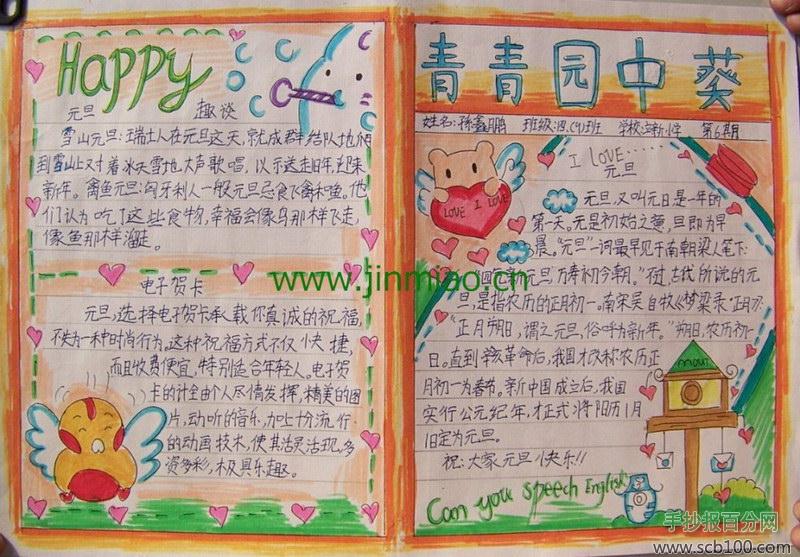 Happy
元旦 趣谈
雪山元旦:瑞士人在元旦这天,就成群结队地俩
到雪山上对着冰天雪地大声歌唱,以示送走旧年,迎来
新年。禽鱼元旦:匈牙利人一般元旦忌食飞禽和鱼。他
们认为吃了这些食物,幸福会像鸟那样飞走,
像鱼那样溜走。
电子贺卡
元旦,选择电子贺卡承载你真诚的祝福,
不失为一种时尚行为。这种祝福方式不仅快捷,
而且收费便宜,特别适合年轻人。电子贺
卡的计全由个人尽情发挥,精美的图
片,动听的音乐,加上十分流行
的动画技术,使其活灵活现,多
姿多彩,极具乐趣。
青青园中葵
姓名:孙鑫鹏 班级:四.(4)班 学校: 小学 第6期
I love......
元旦
LOVE I LOVE
元旦,又叫元日是一年的
第一天。元是初始之意,旦即为早
晨。“元旦”一词最早见于南朝梁人笔下:
“四气新元旦,万寿初今朝。”不过,古代所说的元
旦,是指农历的正月初一。南宋吴自牧《梦梁录·正月》:
“正月朔日,谓之元旦,俗呼为新年。”朔日,农历初一
日。直到辛亥革命后,我国才改称农历正
月初一为春节。新中国成立后,我国
实行公元纪年,才正式将阳历1月
1日定为元旦。
祝:大家元旦快乐!!
Can you speech English
www.jinmiao.cn
手抄报百分网
www.scb100.com